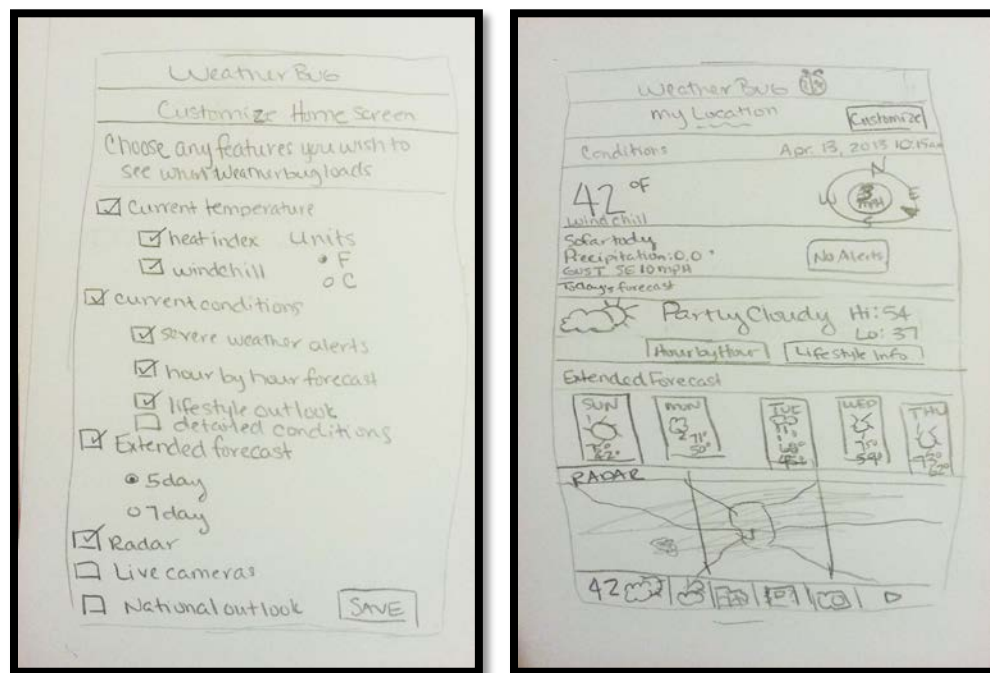 WeatherBug
Customize Home Screen
Choose any features you wish to
see when Weatherbug loads
Current temperature
heat index Units
windchill F
C
Current conditions
severe weather alerts
hour by hour forecast
lifestyle outlook
detailed conditions
Extended forecast
5day
7day
Radar
Live cameras
National outlook SAVE
WeatherBug
My Location Customize
Conditions Apr. 13, 2013 10:15am
N
42 °F W 3 MPH E
Windchill S
So far today
Precipitation: 0.0" No Alerts
GUST SE 10 MPH
Today's forecast
Partly Cloudy Hi: 54
Lo: 37
Hour by Hour Lifestyle Info
Extended Forecast
SUN MON TUE WED THU
71° 68° 75° 73°
62° 50° 45° 59° 62°
RADAR
42